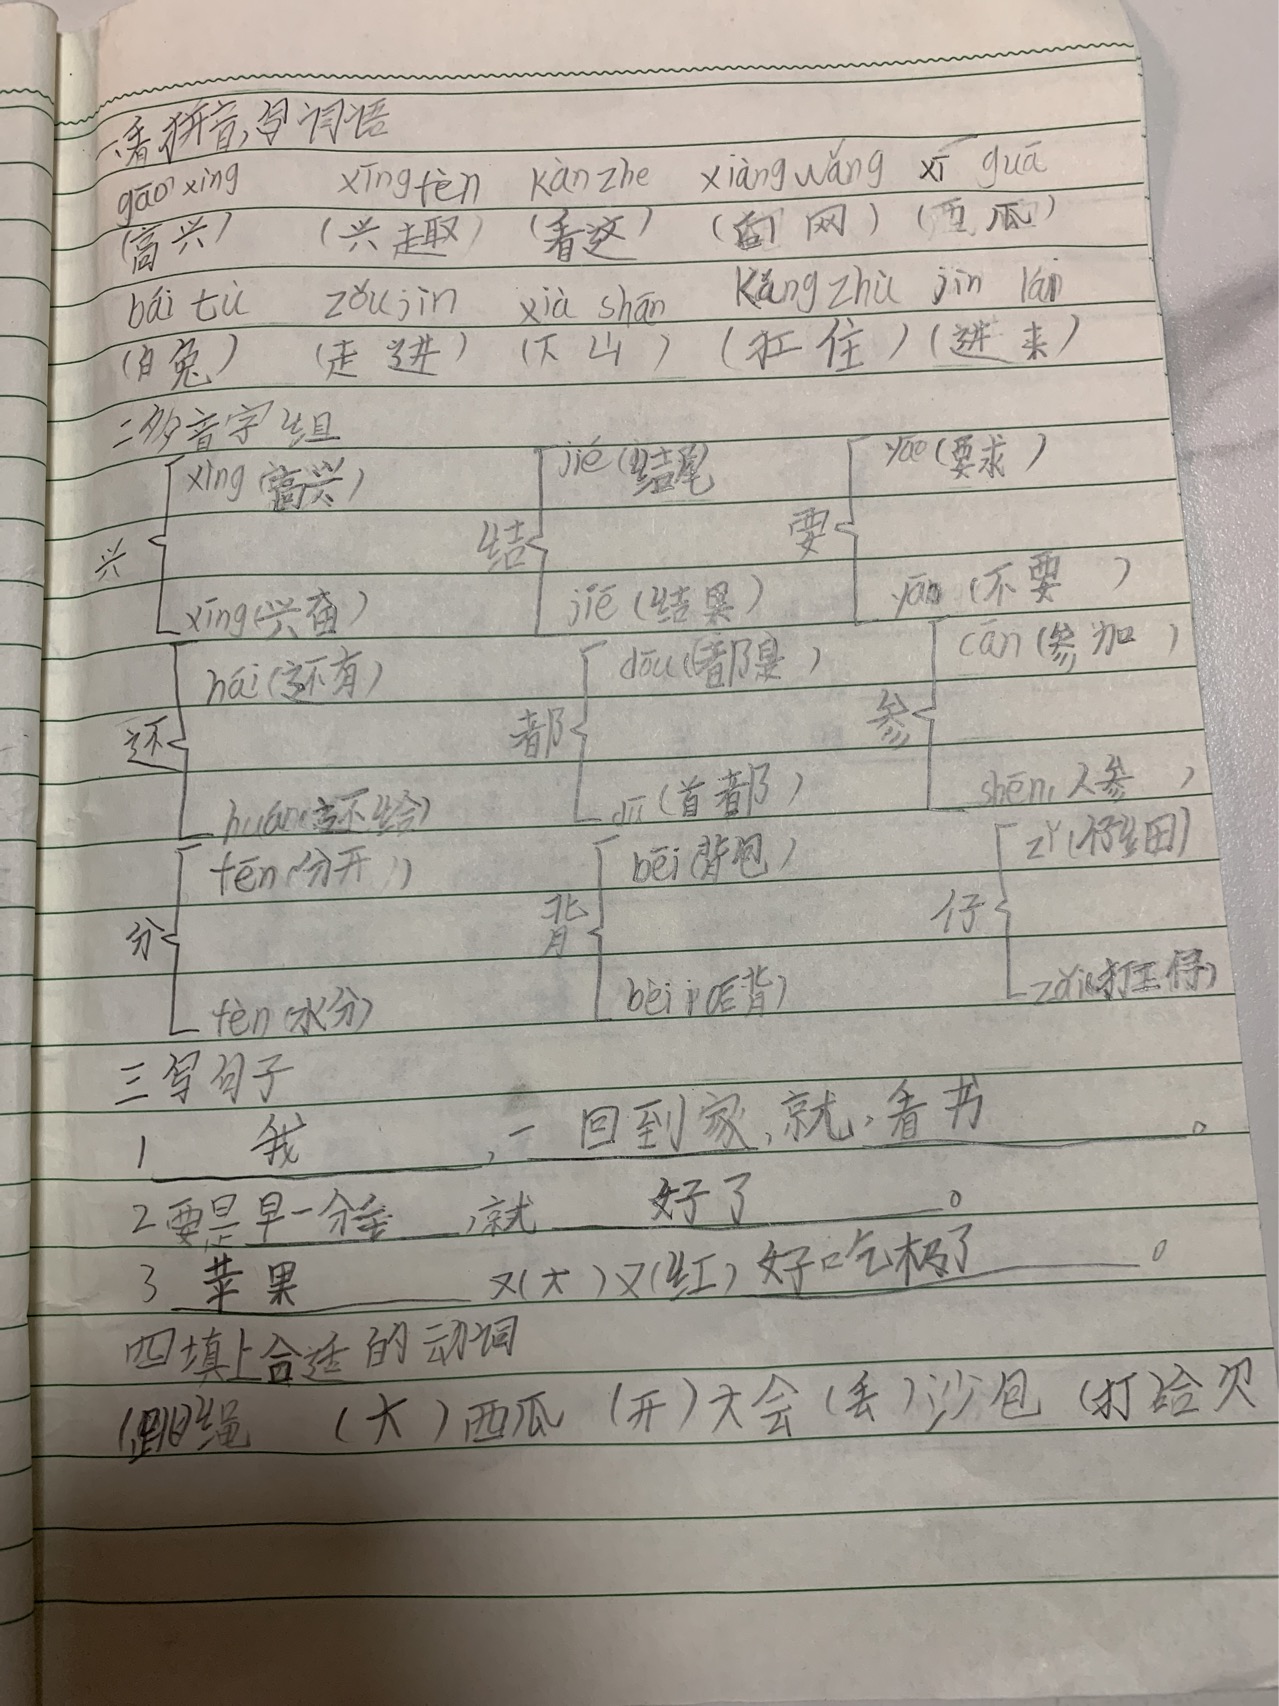 一、看拼音,写词语
gāo xìng xīng fèn kàn zhe xiàng wǎng xī guā
(高兴) (兴趣) (看这) (向网) (西瓜)
bái tù zǒu jìn xià shān káng zhù jìn lái
(白兔) (走进) (下山) (扛住) (进来)
二多音字组
xìng (高兴) jié (结尾 yào (要求)
兴 结 要
xīng (兴奋) jiē (结果) yāo (不要)
hái (还有) dōu (都是) cān (参加)
还 都 参
huán (还给) dū (首都) shēn, 人参)
fēn (分开) bēi (背包) zǐ (仔细)
分 背 仔
fèn (水分) bèi (后背) zǎi (打工仔)
三写句子
1 我 ,一 回到家,就,看书 。
2 要是早一分 ,就 好了 。
3 苹果 又(大)又(红)好吃极了 。
四填上合适的动词
(跳)绳 (大)西瓜 (开)大会 (丢)沙包 (打哈欠